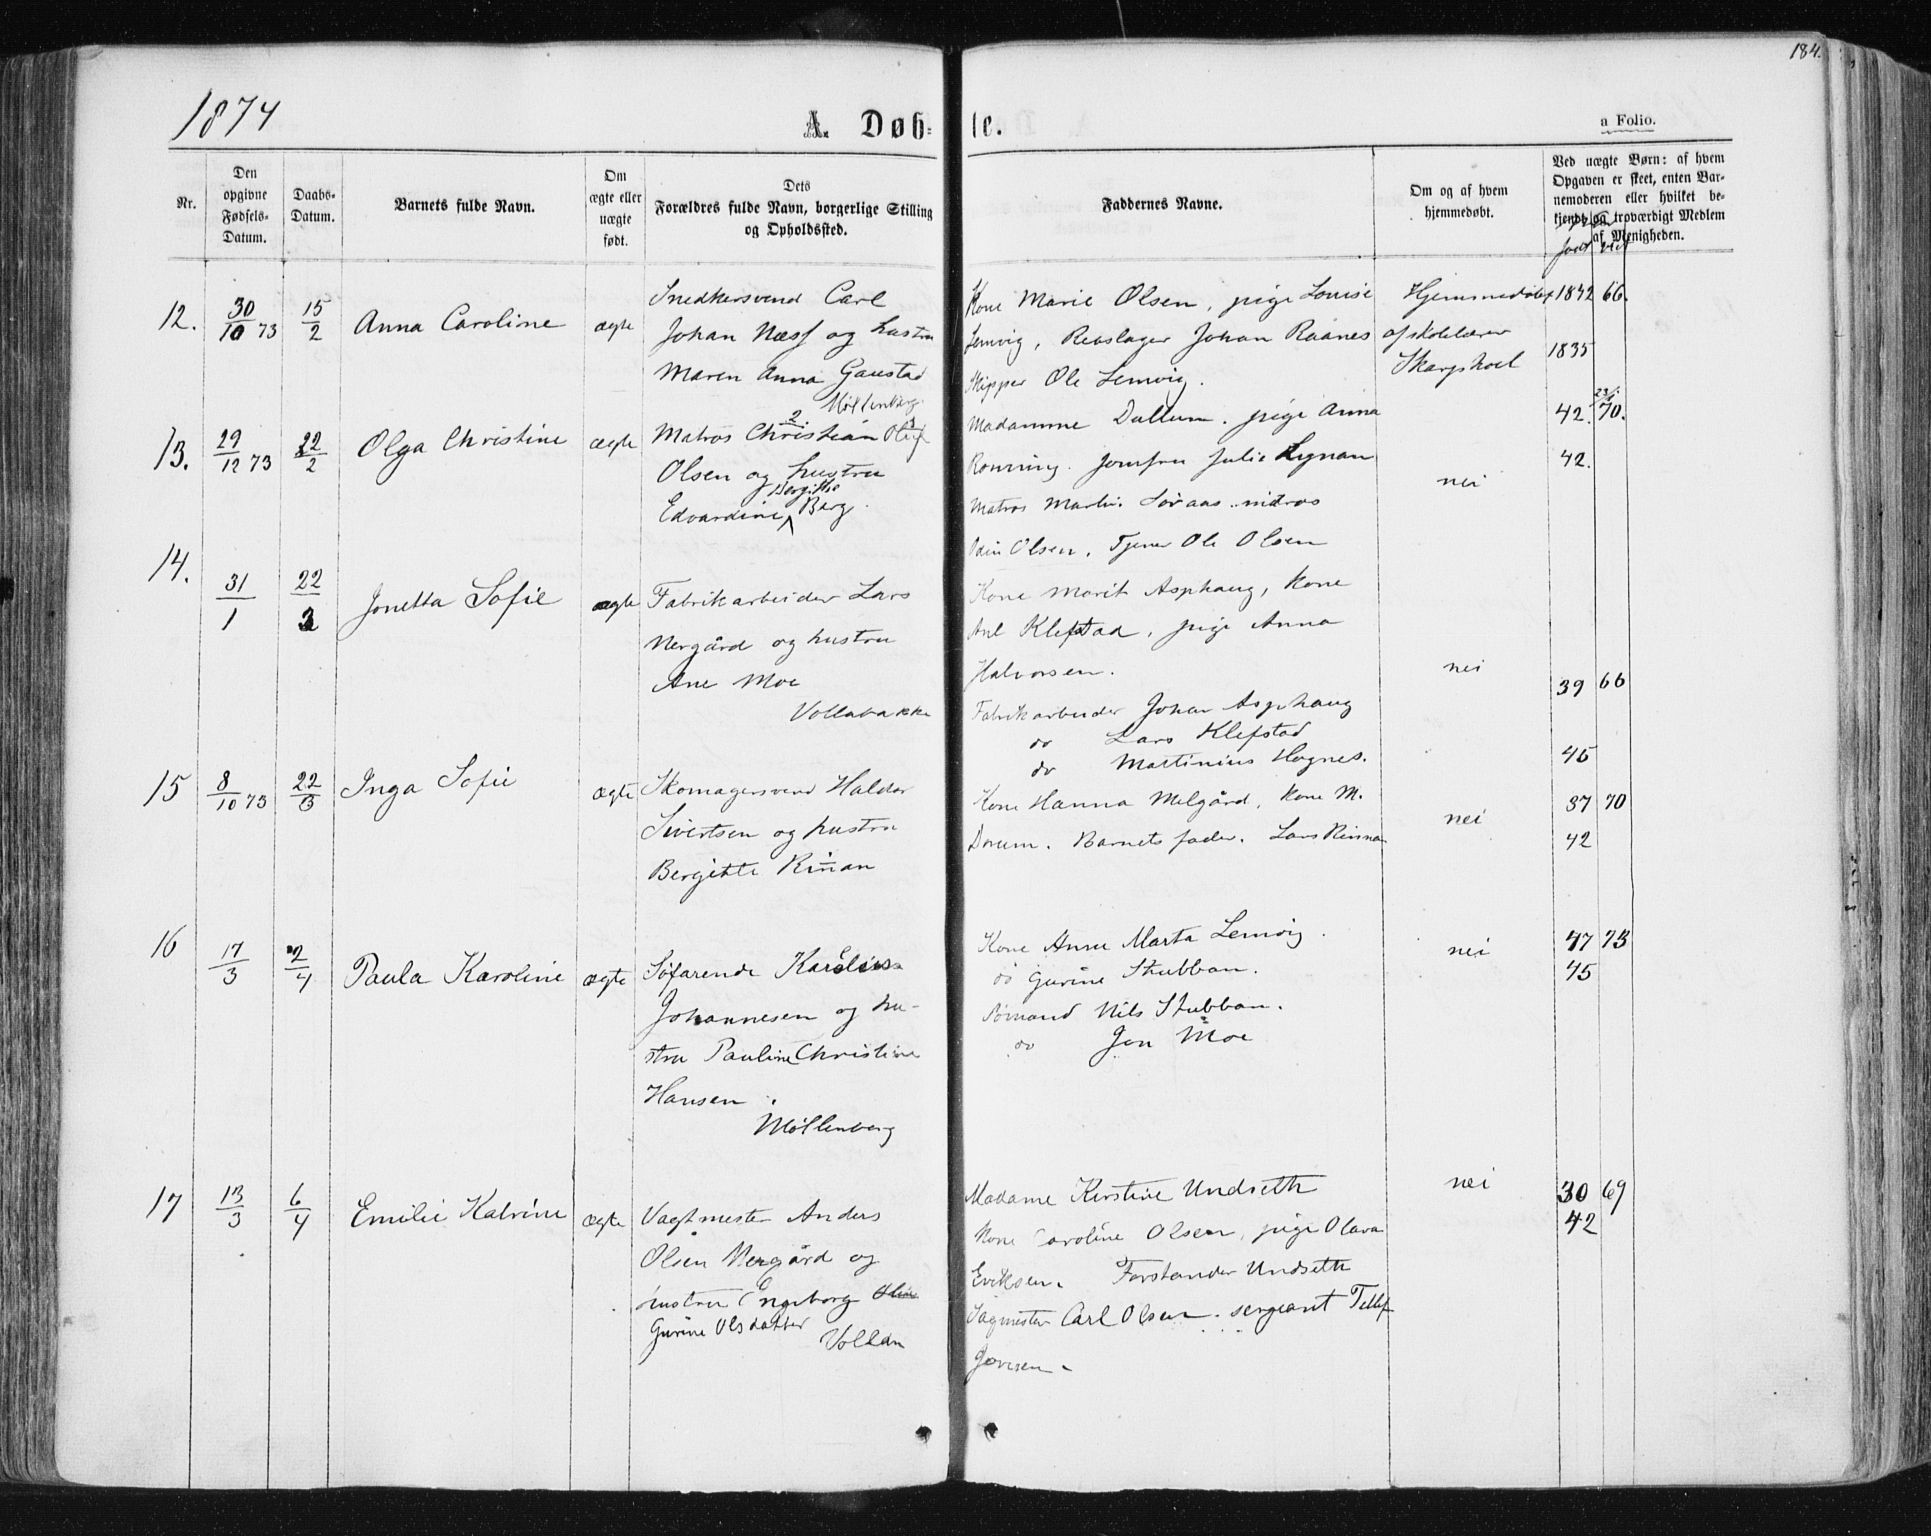 184.
1874
A. Døb=
te.
a Folio.
Nr.
Den opgivne Fødsels-Datum.
Daabs-Datum.
Barnets fulde Navn.
Om ægte eller uægte født.
Dets Forældres fulde Navn, borgerlige Stilling og Opholdssted.
Faddernes Navne.
Om og af hvem hjemmedøbt.
Ved uægte Børn: af hvem Opgaven er skeet, enten Barnemoderen eller hvilket bekjendt og troværdigt Medlem af Menigheden.
født viet
12.
30/10 73
15/2
Anna Caroline
ægte
Snedkersvend Carl
Johan Næss og hustru
Maren Anna Gaustad
Møllenberg
Kone Marie Olsen, pige Louise
Lemvig, Johan Raanes
Skipper Ole Lemvig.
Hjemmedøbt
af skolelærer
Skarpholt
1842 66.
1835
13.
29/12 73
22/2
Olga Christine
ægte
Matros Christian Oluf
Olsen og hustru
Edvardine Bergitte Berg.
Madamme Dullum. pige Anna
Rønning. Jomfru Julie Lynan
Matros Martin
Odin Olsen, Tjener Ole Olsen
nei
42. 70.
42.
14.
31/1
22/3
Jonetta Sofie
ægte
Fabrikarbeider Lars
Nergård og hustru
Ane Moe
Vollabakke
Kone Marit Asphaug, Kone
Klefstad, pige Anna
Halvorsen.
Fabrikarbeider Johan Asphaug
do Lars Klefstad
do Martinius Hognes.
nei
39 66
45
15
8/10 73
22/3
Inga Sofie
ægte
Skomagersvend Haldor
Sivertsen og hustru
Bergitte Rinan
Kone Hanna Melgård, Kone M.
Dorum. Barnets fader. Lars
nei
37 70
42
16
17/3
2/4
Paula Karoline
ægte
Søfarende
Johannesen og hu-
stru Pauline Christine
Hansen.
Møllenberg
Kone Anne Marta Lemvig.
do Gurine Stubban.
Sømand Nils Stubban.
do Jon Moe
nei
47 73
45
17
13/3
6/4
Emilie Katrine
ægte
Vagtmester Anders
Olsen Nergård og
hustru Engeborg
Gurine Olsdatter
Vollan
Madame Kirstine Undseth
Kone Caroline Olsen, pige Olava
Eriksen. Forstander Undseth
Carl Olsen. sergeant Tellef
nei
30 69
42